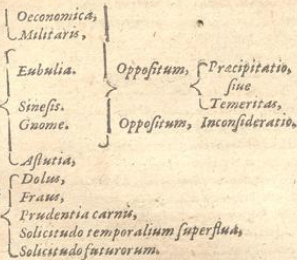 Oeconomica,
Militaris,
Eubulia.
Oppoſitum, Præcipitatio,
ſiue
Sineſis.
Temeritas,
Gnome.
Oppoſitum, Inconſideratio.
Aſtutia,
Dolus,
Fraus,
Prudentia carnis,
Solicitudo temporalium ſuperflua,
Solicitudo futurorum.